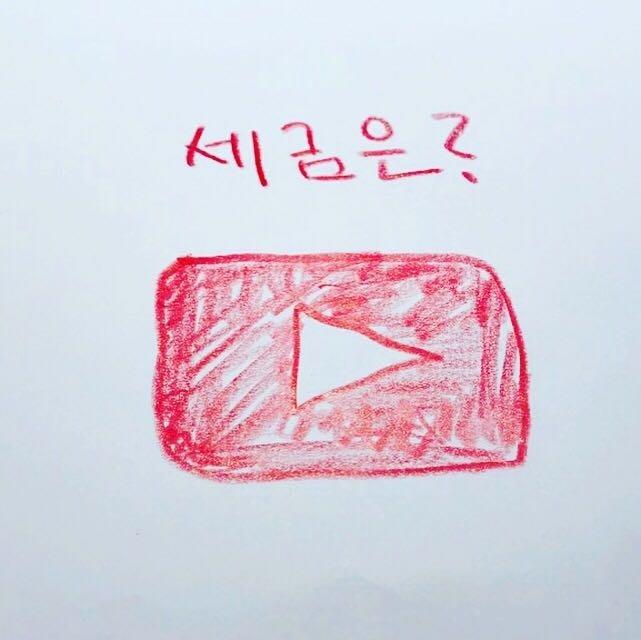 세금은?